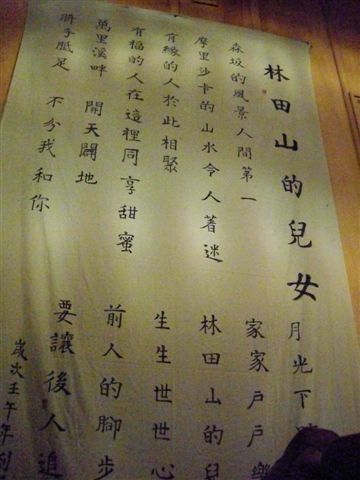 林田山的兒女
森坂的風景人間第一
摩里沙卡的山水令人著迷
有緣的人於此相聚
有福的人在這裡同享甜蜜
萬里溪畔 開天闢地
胼手胝足 不分我和你
月光下
家家戶戶樂
林田山的兒
生生世世心
前人的腳步
要讓後人追
歲次壬午年